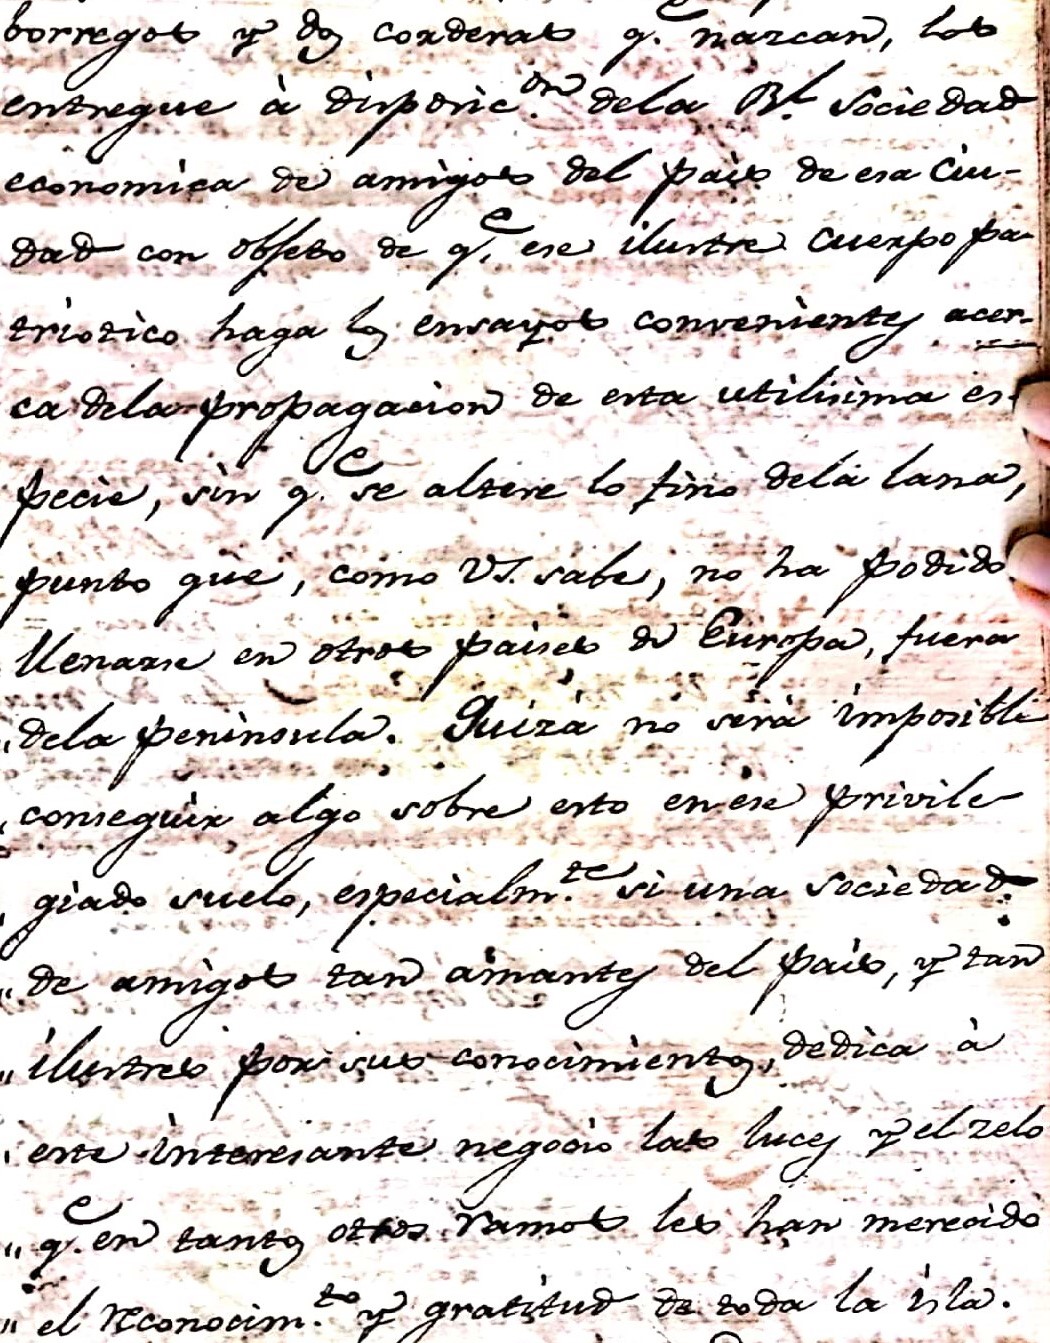 borregos y dos corderas q.e nazcan, los
entregue à disposic.on dela Rl. Sociedad
economica de amigos del païs de esa Ciu-
dad con obgeto de q.e ese ilustre cuerpo pa-
triotico haga los ensayos convenientes acer-
ca dela propagacion de esta utilisima es-
pecie, sin q.e se altere lo fino dela lana,
punto que, como VS. sabe, no ha podido
llenarse en otros paises de Europa, fuera
" dela peninsula. Quizà no serà imposible
" conseguir algo sobre esto en ese privile-
" giado suelo, especialm.te si una sociedad
" de amigos tan amantes del pais, y tan
" ilustres por sus conocimientos, dedica à
" este interesante negocio las luces y el zelo
" q.e en tantos otros ramos les han merecido
" el reconocim.to y gratitud de toda la isla.